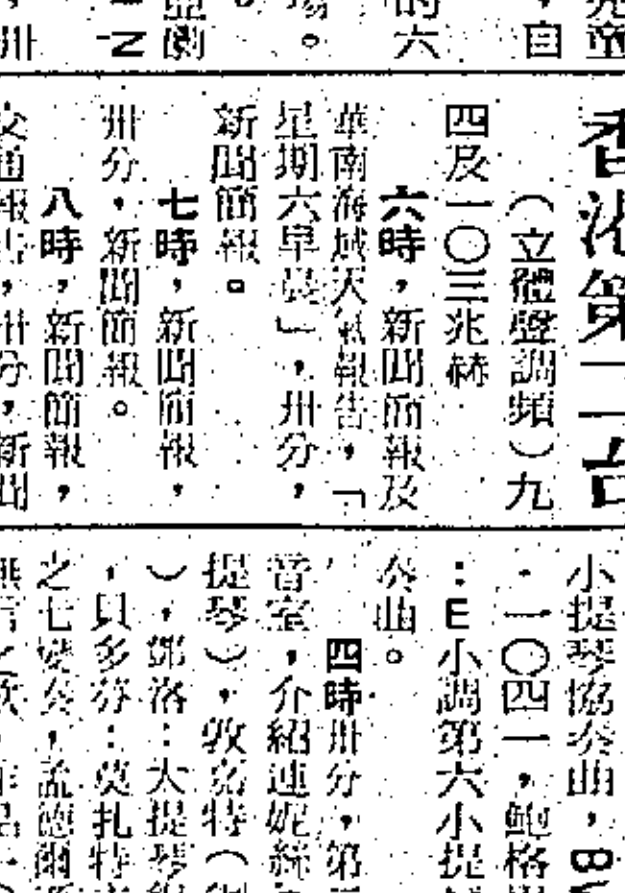 兒童
，自
的六
場。
亞劇
卅
香港第二台
（立體聲調頻）九
四及一〇三兆赫
六時，新聞簡報及
華南海域天氣報告，「
星期六早晨」，卅分，
新聞簡報。
七時，新聞簡報，
卅分，新聞簡報。
八時，新聞簡報，
交通報告，卅分，新聞
小提琴協奏曲，B
・一〇四一，鮑格
：E小調第六小提
奏曲。
四時卅分，第
音室，介紹連妮絲
提琴），敦克特（鋼
），鄧洛：大提琴
，貝多芬：莫扎特
之七變奏，孟德爾
無言之歌，作品一